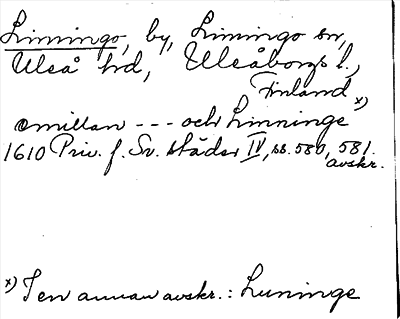 Limingo, by, Limingo sn,
Uleå hrd, Uleåborgs l.,
Finland
emillan --- och Linninge x)
1610 Priv. f. Sv. städer IV, ss. 580, 581.
avskr.
x) I en annan avskr.: Luninge